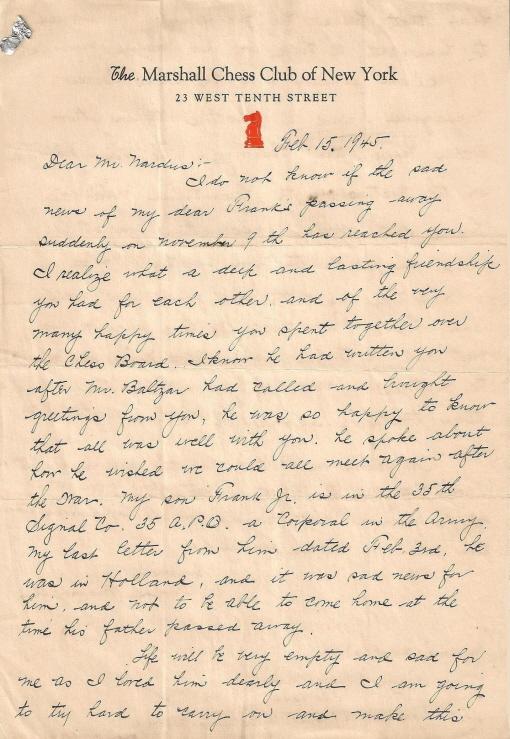 The Marshall Chess Club of New York
23 WEST TENTH STREET
Feb. 15. 1945.
Dear Mr. Nardus:-
I do not know if the sad
news of my dear Frank's passing away
suddenly on november 9th has reached you.
I realize what a deep and lasting friendship
you had for each other, and of the very
many happy times you spent together over
the Chess Board. I know he had written you
after Mr. Baltzar had called and brought
greetings from you, he was so happy to know
that all was well with you. he spoke about
how he wished we could all meet again after
the War. My son Frank Jr. is in the 35th
Signal Co. 35 A.P.O. a Corporal in the Army.
My last letter from him dated Feb. 3rd, he
was in Holland, and it was sad news for
him, and not to be able to come home at the
time his father passed away.
Life will be very empty and sad for
me as I loved him dearly and I am going
to try hard to carry on and make this